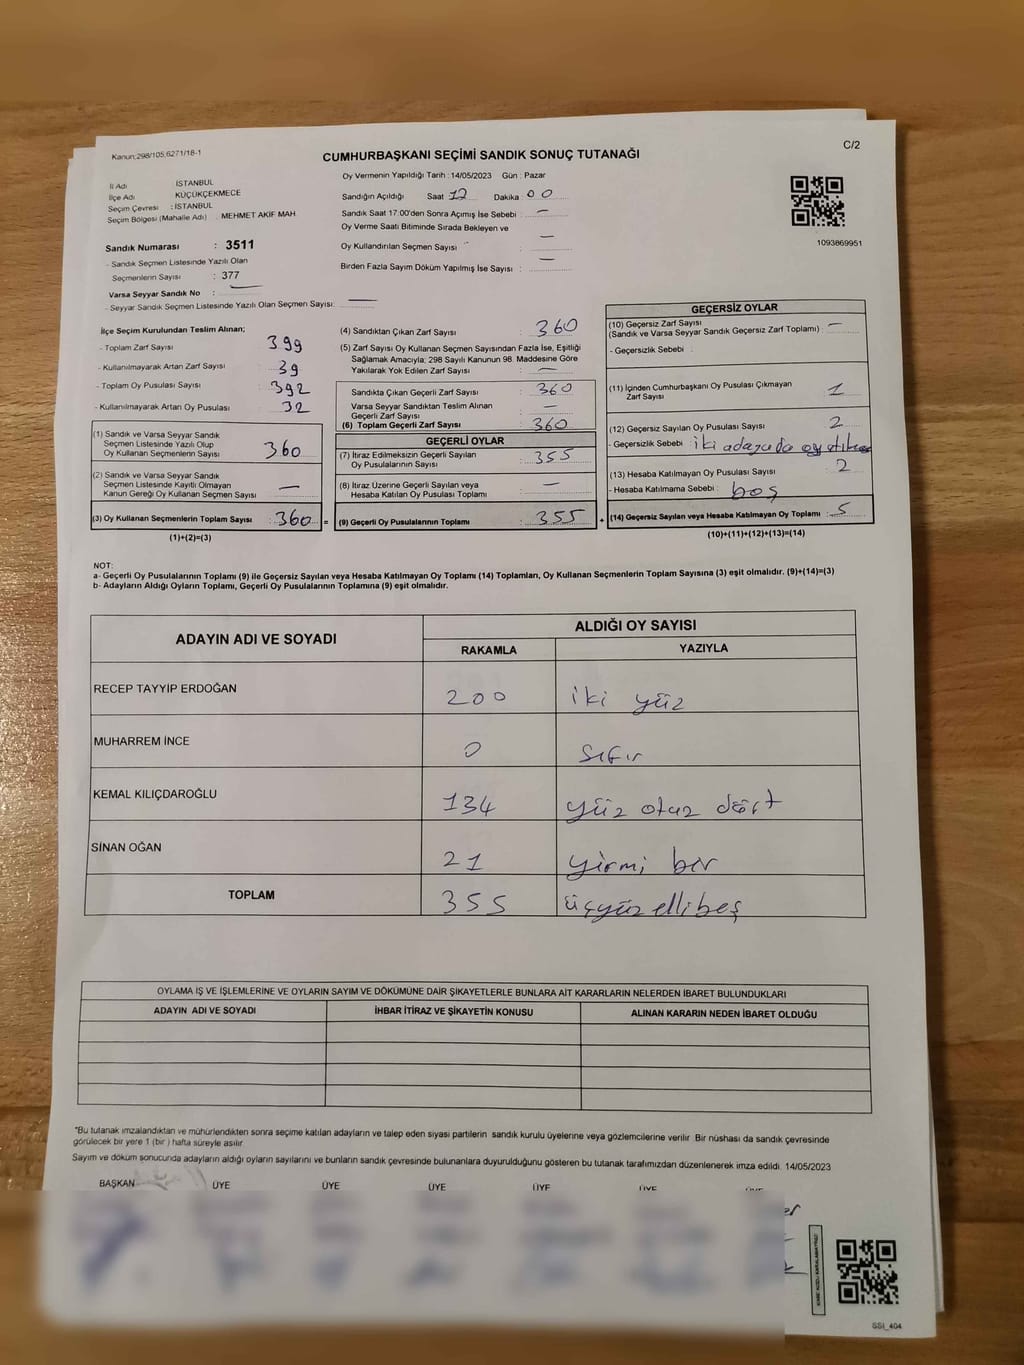 Kanun;298/105;6271/18-1
CUMHURBAŞKANI SEÇİMİ SANDIK SONUÇ TUTANAĞI
C/2
İl Adı : İSTANBUL
İlçe Adı : KÜÇÜKÇEKMECE
Seçim Çevresi : İSTANBUL
Seçim Bölgesi (Mahalle Adı) : MEHMET AKİF MAH
Sandık Numarası : 3511
- Sandık Seçmen Listesinde Yazılı Olan
Seçmenlerin Sayısı : 377
Varsa Seyyar Sandık No : —
- Seyyar Sandık Seçmen Listesinde Yazılı Olan Seçmen Sayısı: —
Oy Vermenin Yapıldığı Tarih : 14/05/2023 Gün : Pazar
Sandığın Açıldığı Saat 12 Dakika 00
Sandık Saat 17:00'den Sonra Açımış İse Sebebi : —
Oy Verme Saati Bitiminde Sırada Bekleyen ve
Oy Kullandırılan Seçmen Sayısı : —
Birden Fazla Sayım Döküm Yapılmış İse Sayısı : —
1093869951
İlçe Seçim Kurulundan Teslim Alınan;
- Toplam Zarf Sayısı : 399
- Kullanılmayarak Artan Zarf Sayısı : 39
- Toplam Oy Pusulası Sayısı : 392
- Kullanılmayarak Artan Oy Pusulası : 32
(1) Sandık ve Varsa Seyyar Sandık
Seçmen Listesinde Yazılı Olup
Oy Kullanan Seçmenlerin Sayısı : 360
(2) Sandık ve Varsa Seyyar Sandık
Seçmen Listesinde Kayıtlı Olmayan
Kanun Gereği Oy Kullanan Seçmen Sayısı : —
(3) Oy Kullanan Seçmenlerin Toplam Sayısı : 360 =
(1)+(2)=(3)
(4) Sandıktan Çıkan Zarf Sayısı : 360
(5) Zarf Sayısı Oy Kullanan Seçmen Sayısından Fazla İse, Eşitliği
Sağlamak Amacıyla; 298 Sayılı Kanunun 98. Maddesine Göre
Yakılarak Yok Edilen Zarf Sayısı : —
Sandıkta Çıkan Geçerli Zarf Sayısı : 360
Varsa Seyyar Sandıktan Teslim Alınan
Geçerli Zarf Sayısı : —
(6) Toplam Geçerli Zarf Sayısı : 360
GEÇERLİ OYLAR
(7) İtiraz Edilmeksizin Geçerli Sayılan
Oy Pusulalarının Sayısı : 355
(8) İtiraz Üzerine Geçerli Sayılan veya
Hesaba Katılan Oy Pusulası Toplamı : —
(9) Geçerli Oy Pusulalarının Toplamı : 355 +
GEÇERSİZ OYLAR
(10) Geçersiz Zarf Sayısı
(Sandık ve Varsa Seyyar Sandık Geçersiz Zarf Toplamı) : —
- Geçersizlik Sebebi :
(11) İçinden Cumhurbaşkanı Oy Pusulası Çıkmayan
Zarf Sayısı : 1
(12) Geçersiz Sayılan Oy Pusulası Sayısı : 2
- Geçersizlik Sebebi : iki adaya da oy
(13) Hesaba Katılmayan Oy Pusulası Sayısı : 2
- Hesaba Katılmama Sebebi : boş
(14) Geçersiz Sayılan veya Hesaba Katılmayan Oy Toplamı : 5
(10)+(11)+(12)+(13)=(14)
NOT:
a- Geçerli Oy Pusulalarının Toplamı (9) ile Geçersiz Sayılan veya Hesaba Katılmayan Oy Toplamı (14) Toplamları, Oy Kullanan Seçmenlerin Toplam Sayısına (3) eşit olmalıdır. (9)+(14)=(3)
b- Adayların Aldığı Oyların Toplamı, Geçerli Oy Pusulalarının Toplamına (9) eşit olmalıdır.
ADAYIN ADI VE SOYADI
ALDIĞI OY SAYISI
RAKAMLA YAZIYLA
RECEP TAYYİP ERDOĞAN 200 iki yüz
MUHARREM İNCE 0 Sıfır
KEMAL KILIÇDAROĞLU 134 yüz otuz dört
SİNAN OĞAN 21 yirmi bir
TOPLAM 355 üçyüz ellibeş
OYLAMA İŞ VE İŞLEMLERİNE VE OYLARIN SAYIM VE DÖKÜMÜNE DAİR ŞİKAYETLERLE BUNLARA AİT KARARLARIN NELERDEN İBARET BULUNDUKLARI
ADAYIN ADI VE SOYADI İHBAR İTİRAZ VE ŞİKAYETİN KONUSU ALINAN KARARIN NEDEN İBARET OLDUĞU
"Bu tutanak imzalandıktan ve mühürlendikten sonra seçime katılan adayların ve talep eden siyasi partilerin sandık kurulu üyelerine veya gözlemcilerine verilir. Bir nüshası da sandık çevresinde
görülecek bir yere 1 (bir ) hafta süreyle asılır.
Sayım ve döküm sonucunda adayların aldığı oyların sayılarını ve bunların sandık çevresinde bulunanlara duyurulduğunu gösteren bu tutanak tarafımızdan düzenlenerek imza edildi. 14/05/2023
BAŞKAN ÜYE ÜYE ÜYE ÜYE ÜYE
SSI_404